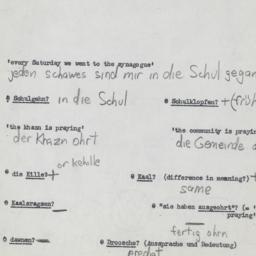 'every Saturday we went to the synagogue'
jeden schawes sind mir in die Schul gegan
Schulgehn? in die Schul
Schulklopfen? +(früh
'the khazn is praying'
'the community is prayin
der Khazn ohrt
die Gemeinde
or kehille
die Kille? +
Kaal? (difference in meaning?) +
same
Kaalsragsen?
"sie haben ausgeohrt"? (= '
praying'
fertig ohrn
dawnen?
Droosche? (Aussprache und Bedeutung)